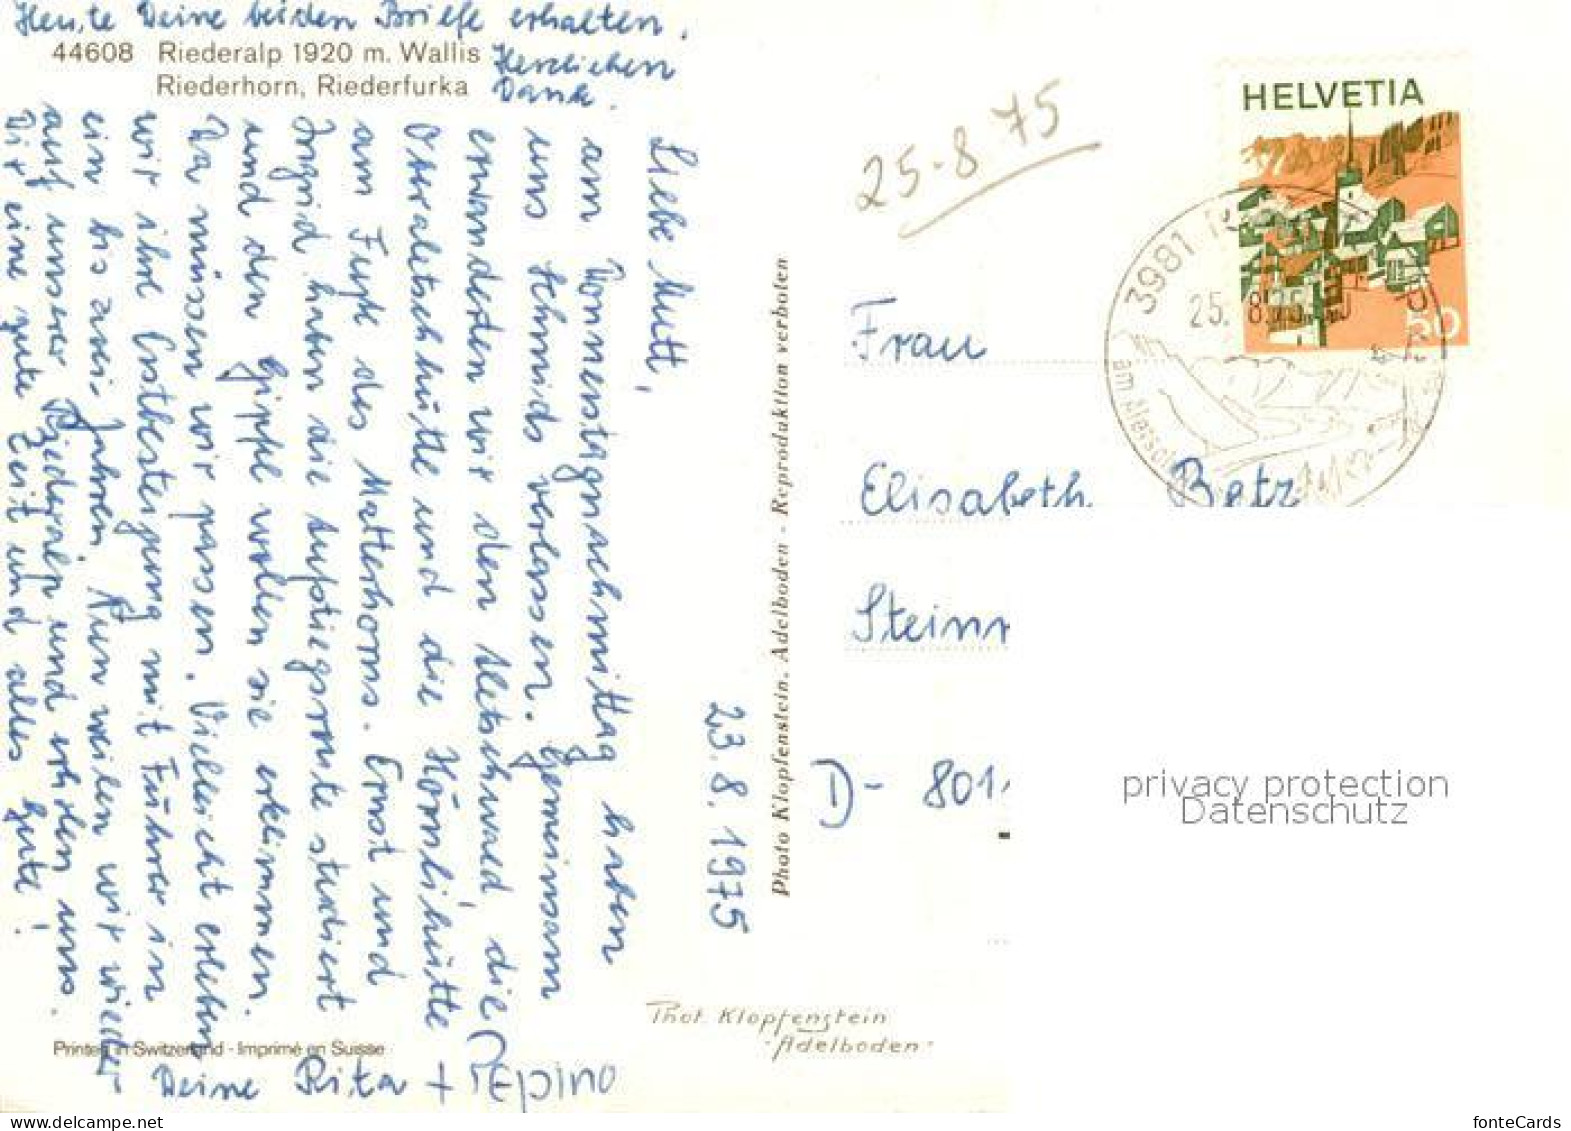 Heute Deine beiden Briefe erhalten.
Herzlichen
Dank.
44608 Riederalp 1920 m. Wallis
Riederhorn, Riederfurka
23.8.1975
Liebe Mutt,
am Donnerstagnachmittag haben
uns Schmids verlassen. Gemeinsam
erwanderten wir den Aletschwald, die
Oberaletschhütte und die Hörnlihütte
am Fuße des Matterhorns. Ernst und
Ingrid haben die Aufstiegsroute studiert
und den Gipfel wollen sie erklimmen.
Da müssen wir passen. Vielleicht erleben
wir ihre Erstbesteigung mit Führer in
ein bis zwei Jahren. Nun weilen wir wieder
auf unserer Riederalp und erholen uns.
Dir eine gute Zeit und alles Gute!
Deine Rita +
Printed in Switzerland - Imprimé en Suisse
Photo Klopfenstein, Adelboden - Reproduktion verboten
Phot. Klopfenstein
Adelboden
25.8.75
HELVETIA
50
3981
25. 8.75
am Aletsch
Frau
Elisabeth Betz
Steinr
D- 801
privacy protection
Datenschutz
www.delcampe.net
fonteCards